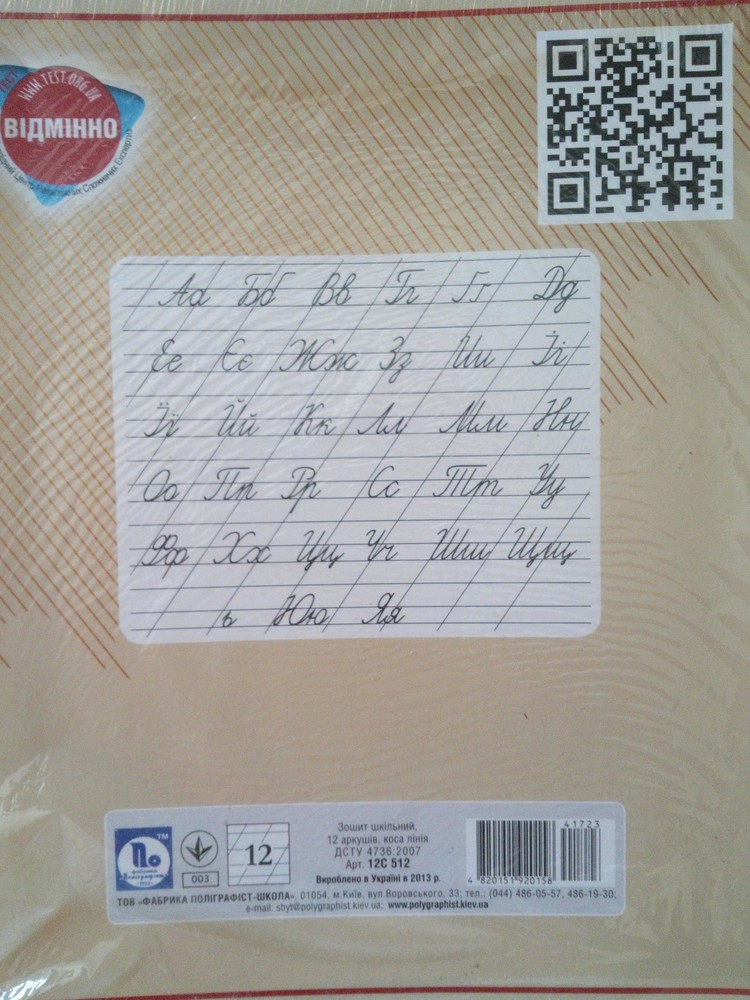 WWW.TEST.ORG.UA
ВІДМІННО
Аа Бб Вв Гг Ґґ Дд
Ее Єє Жж Зз Ии Іі
Її Йй Кк Лл Мм Нн
Оо Пп Рр Сс Тт Уу
Фф Хх Цц Чч Шш Щщ
ь Юю Яя
TM
По
фабрика
Поліграфіст
003
12
Зошит шкільний,
12 аркушів, коса лінія
ДСТУ 4736:2007
Арт. 12С 512
Вироблено в Україні в 2013 р.
41723
4 820151 920158
ТОВ «ФАБРИКА ПОЛІГРАФІСТ-ШКОЛА», 01054, м.Київ, вул.Воровського, 33; тел.: (044) 486-05-57, 486-19-30;
e-mail: sbyt@polygraphist.kiev.ua; www.polygraphist.kiev.ua